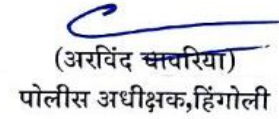 (अरविंद चावरिया)
पोलीस अधीक्षक,हिंगोली